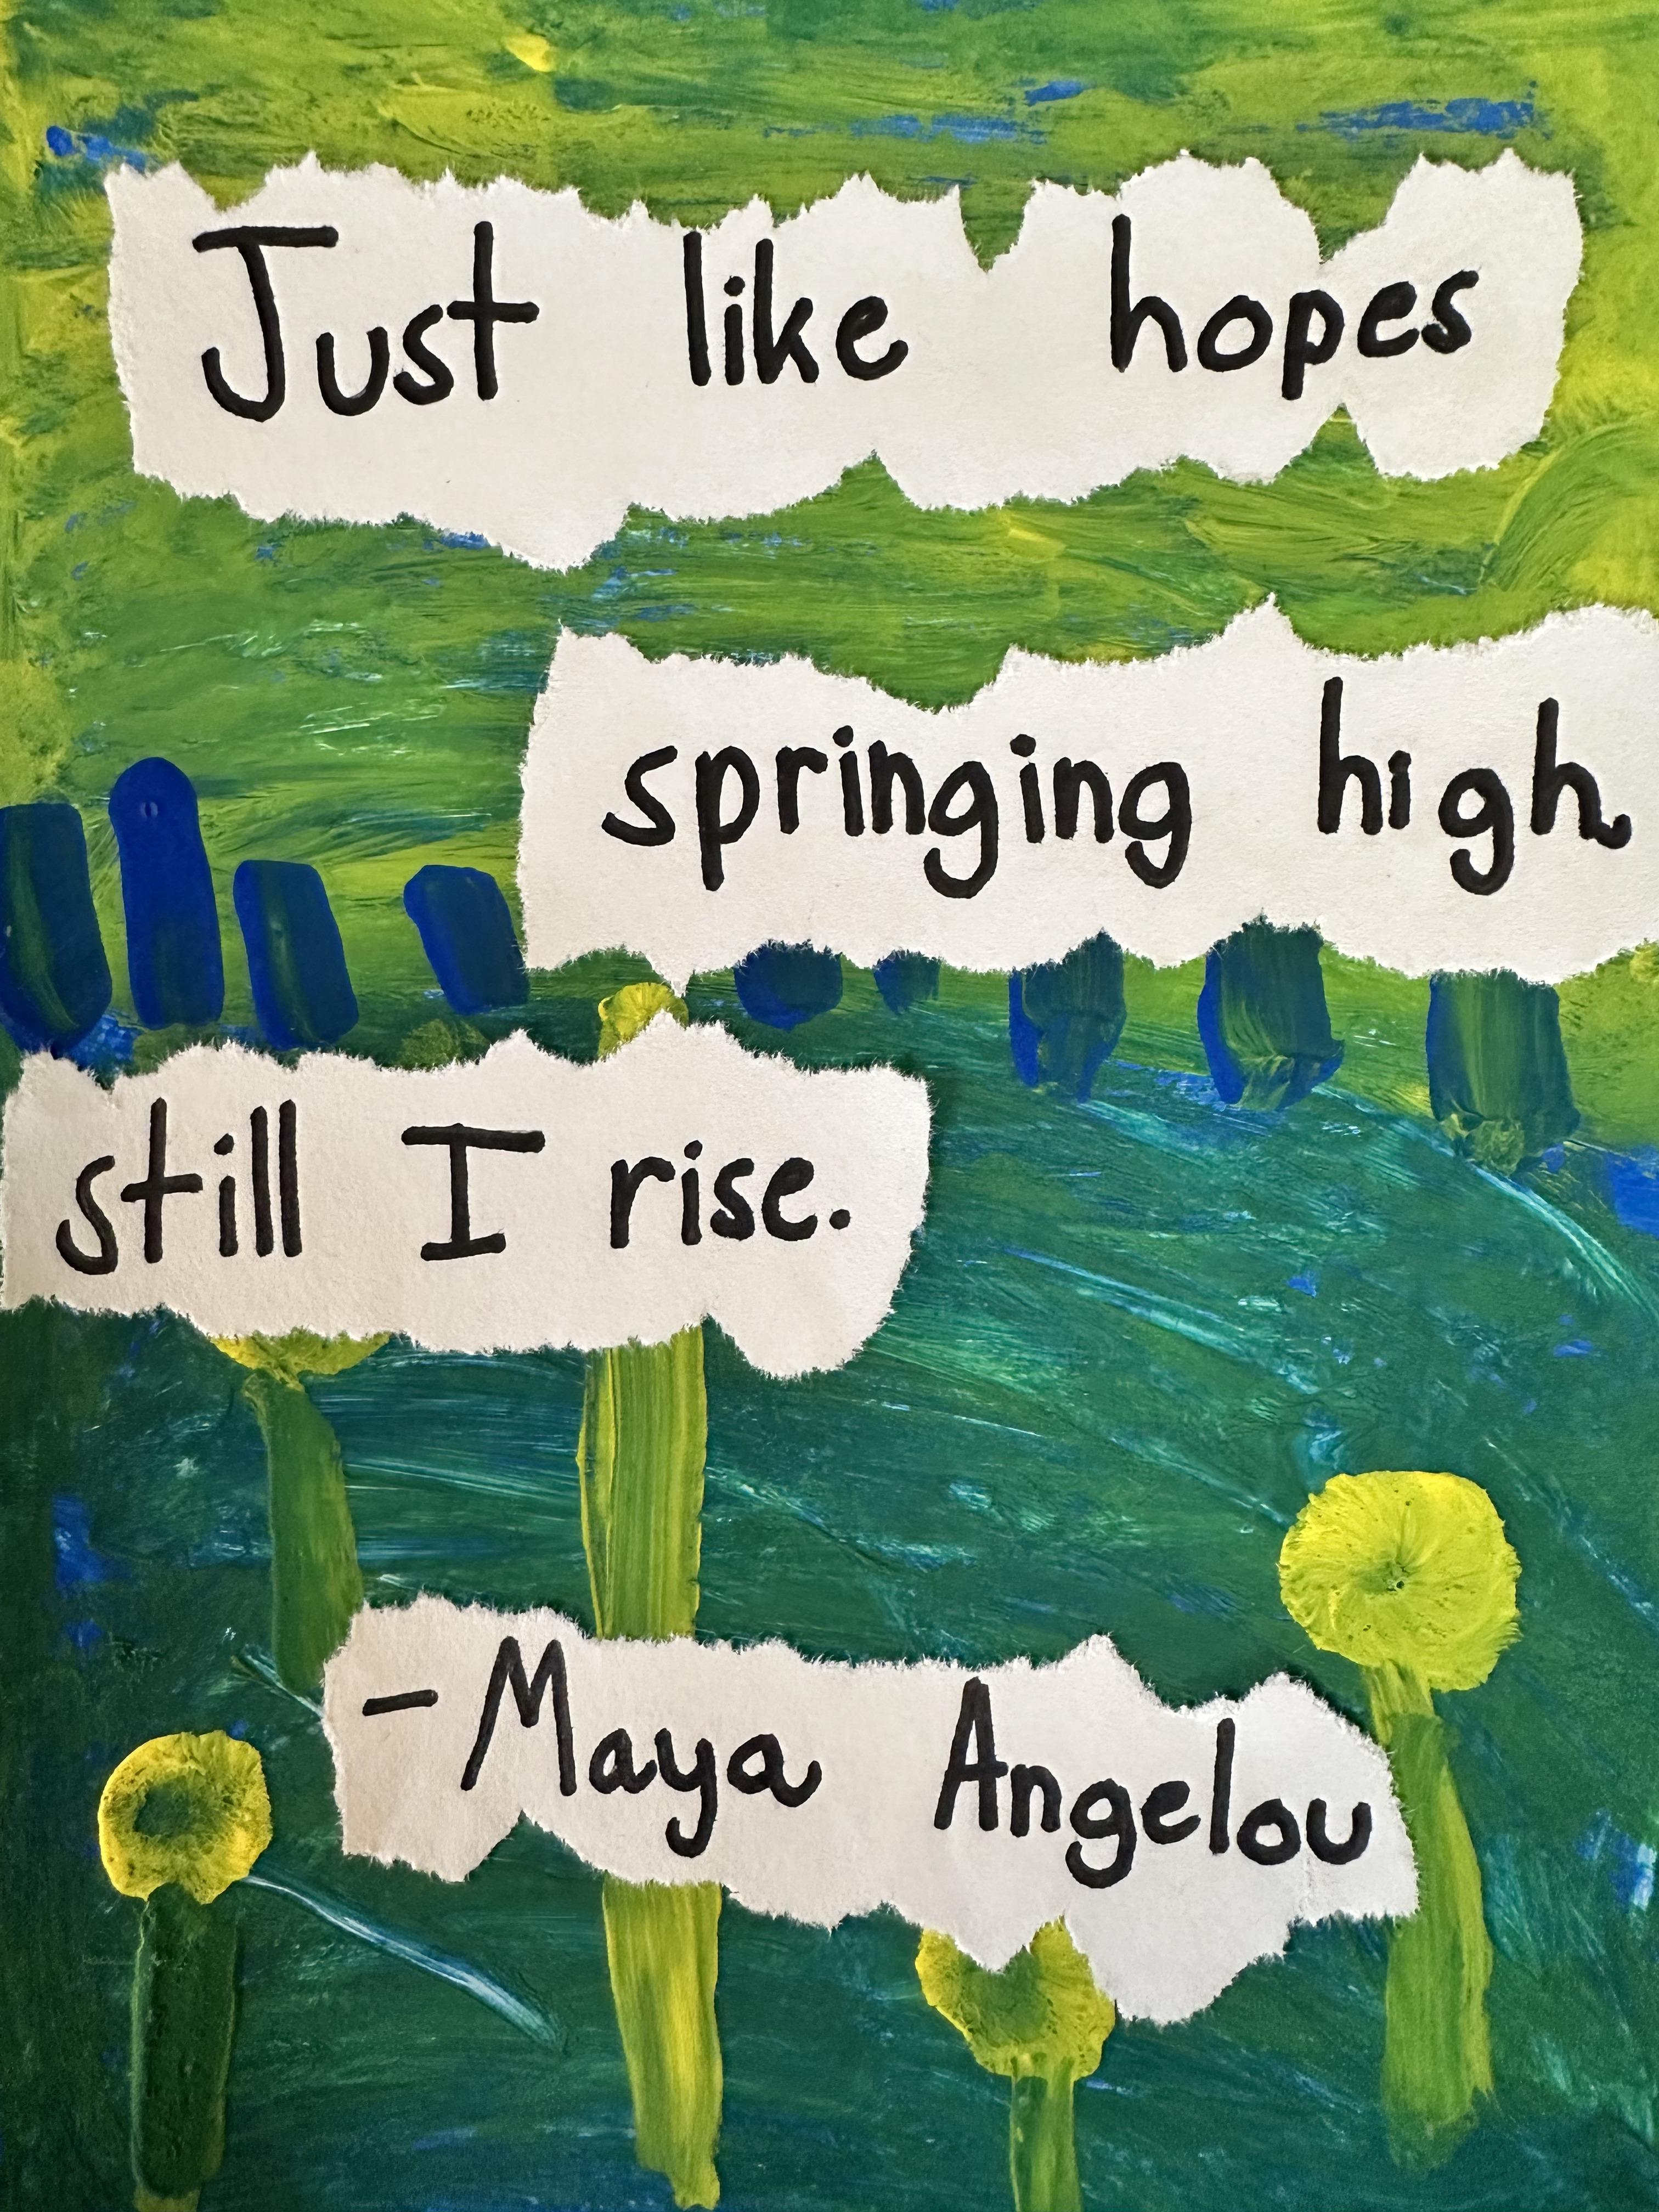 Just like hopes
springing high,
still I rise.
-Maya Angelou